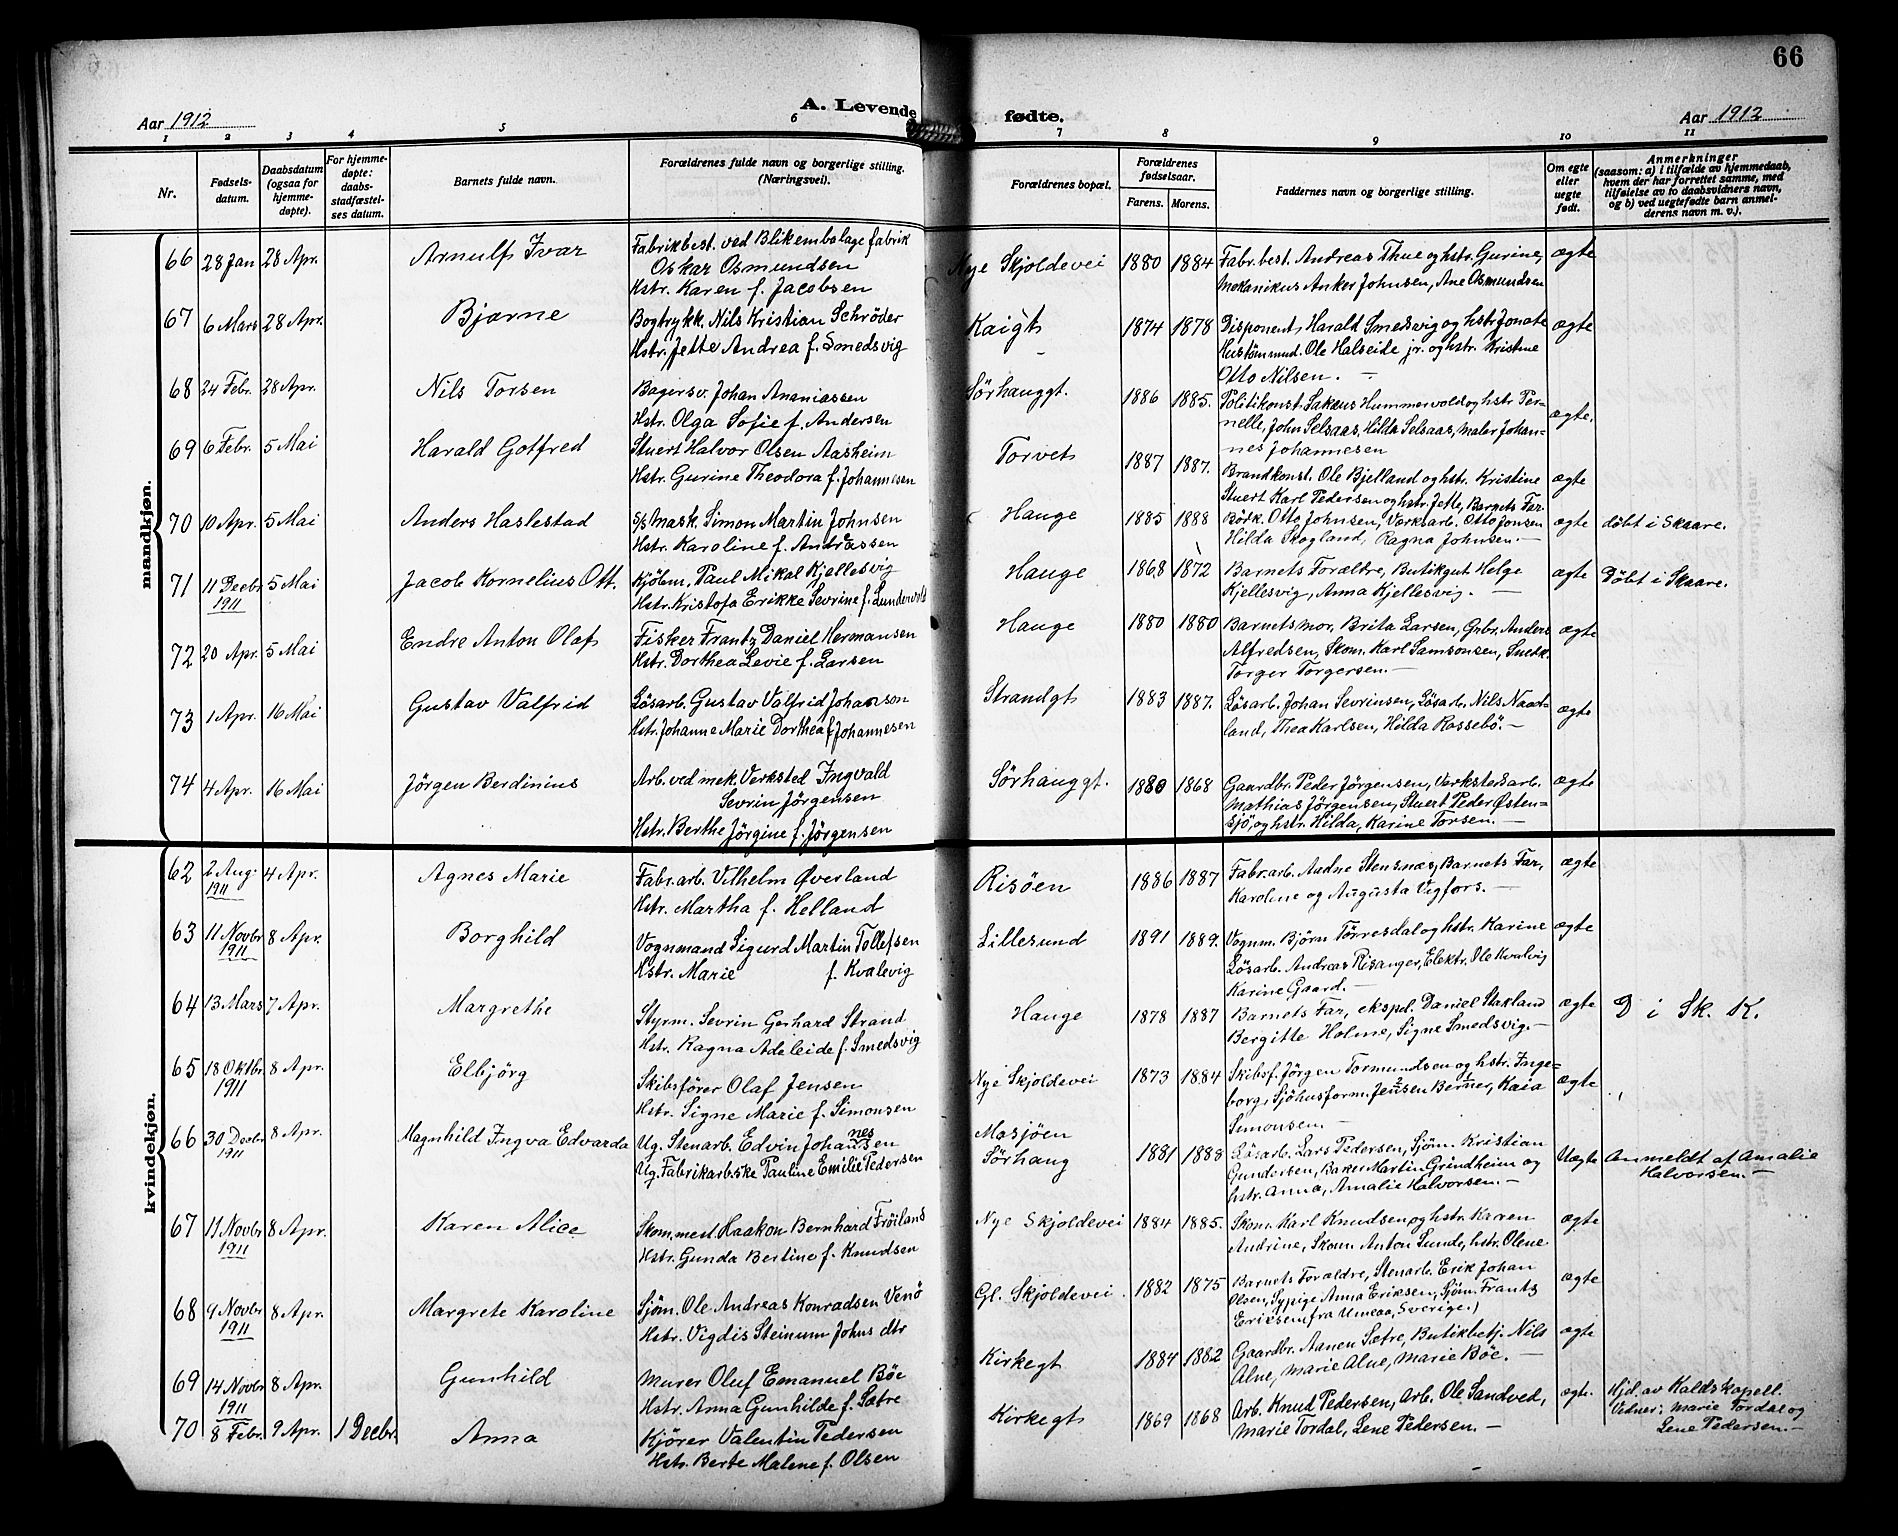 66
Aar 1912
A. Levende
fødte.
Aar 1912
1 2 3 4 5 6 7 8 9 10 11
Nr.
Fødsels-
datum.
Daabsdatum
(ogsaa for
hjemme-
døpte).
For hjemme-
døpte:
daabs-
stadfæstel-
ses datum.
Barnets fulde navn.
Forældrenes fulde navn og borgerlige stilling.
(Næringsvei).
Forældrenes bopæl.
Forældrenes
fødselsaar.
Farens. Morens.
Faddernes navn og borgerlige stilling.
Om egte
eller
uegte
født.
Anmerkninger
(saasom: a) i tilfælde av hjemmedaab,
hvem der har forrettet samme, med
tilføielse av to daabsvidners navn,
og b) ved uegtefødte barn anmel-
derens navn m. v.).
mandkjøn.
66 28 Jan 28 Apr. Arnulf Ivar
Fabrikbest. ved Blikembalage fabrik
Oskar Osmundsen
Hstr. Karen f. Jacobsen
Nye Skjoldevei 1880 1884
Fabr. best. Andreas Thue og hstr. Gurine,
Mekanikus Anker Johnsen, Ane Osmundsen
ægte
67 6 Mars 28 Apr. Bjarne
Bogtrykk. Nils Kristian Schröder
Hstr. Jette Andrea f. Smedsvig
Kaigt 1874 1878
Disponent Harald Smedsvig og hstr Jonate
Hustømmd. Ole Halseide jr. og hstr. Kristine
Otto Nilsen. —
ægte
68 24 Febr. 28 Apr. Nils Torsen
Bagersv. Johan Ananiassen
Hstr. Olga Sofie f. Andersen
Sørhauggt. 1886 1885.
Politikonst. Sakeus Hummervold og hstr Per-
nelle, John Selsaas, Hilda Selsaas, Maler Johan-
nes Johannesen
ægte.
69 6 Febr. 5 Mai Harald Gotfred
Stuert Halvor Olsen Aasheim
Hstr. Gurine Theodora f. Johannesen
Torvet 1887 1887.
Brandkonst. Ole Bjelland og hstr. Kristine
Stuert Karl Pedersen og hstr. Jette, Barnets Far
ægte
70 10 Apr. 5 Mai Anders Haslestad
S/S Mask. Simon Martin Johnsen
Hstr. Karoline f. Andreassen
Hauge 1885 1888
Bödk. Otto Johnsen, Verksarb. Otto Jonsen
Hilda Skogland, Ragna Johnsen. —
ægte døbt i Skaare.
71 11 Decbr 1911 5 Mai Jacob Kornelius Ott.
Kjøbm. Paul Mikal Kjellesvig
Hstr. Kristofa Erikke Sevrine f. Lundevold
Hauge 1868 1872
Barnets Forældre, Butikgut Helge
Kjellesvig, Anna Kjellesvig. —
ægte Døbt i Skaare.
72 20 Apr. 5 Mai Endre Anton Olaf
Fisker Frantz Daniel Hermansen
Hstr. Dorthea Levie f. Larsen
Hauge 1880 1880
Barnets mor, Brita Larsen, Grbr. Anders
Alfredsen, Skom. Karl Samsonsen, Snedk.
Torger Torgersen. —
ægte
73 1 Apr. 16 Mai Gustav Valfrid
Løsarb. Gustav Valfrid Johanson
Hstr. Johanne Marie Dorthea f. Johannesen
Strandgt 1883 1887.
Løsarb. Johan Sevrinsen, Løsarb. Nils Naad-
land, Thea Karlsen, Hilda Rossebö. —
ægte
74 4 Apr. 16 Mai Jörgen Berdinius
Arb. ved mek. Verksted Ingvald
Sevrin Jörgensen
Hstr. Berthe Jörgine f. Jörgensen
Sørhauggt. 1880 1868
Gaardbr. Peder Jörgensen, Verkstedsarb.
Mathias Jörgensen, Stuert Peder Østen-
sjö, og hstr. Hilda, Karine Torsen. —
ægte
kvindekjøn.
62 2 Aug. 1911 4 Apr. Agnes Marie
Fabr. arb. Vilhelm Øverland
Hstr. Martha f. Helland
Risöen 1886 1887
Fabr. arb. Audne Stensnæs, Barnets Far,
Karoline og Augusta Vigfors. —
ægte
63 11 Novbr 1911 8 Apr. Borghild
Vognmand Sigurd Martin Tollefsen
Hstr. Marie f. Kvalevig
Lillesund 1891 1889.
Vognm. Björn Törresdal og hstr. Karine
Løsarb. Andreas Risanger, Elektr. Ole Kvalvig
Karine Gaard. —
ægte
64 13 Mars 7 Apr. Margrethe
Styrm. Sevrin Gerhard Strand
Hstr. Ragna Adeleide f. Smedsvig
Hauge 1878 1887
Barnets Far, ekspd. Daniel Stakland
Bergitte Holme, Signe Smedsvig. —
ægte D i Sk. K.
65 18 Oktbr. 1911 8 Apr. Elbjörg
Skibsfører Olaf Jensen
Hstr. Signe Marie f. Simonsen
Nye Skjoldevei 1873 1884
Skibsf. Jörgen Tormundsen og hstr. Inge-
borg, Sjöhusform. Jensen Berner, Kaia
Simonsen. —
ægte
66 30 Decbr 1911 8 Apr. Magnhild Ingva Edvarda
Ug. Stenarb. Edvin Johannesen
Ug. Fabrikarbske Pauline Emilie Pedersen
Mosjöen
Sørhaug 1881 1888
Løsarb. Lars Pedersen, Sjöm. Kristian
Gundersen, Baker Martin Grindheim og
hstr. Anna, Amalie Halvorsen. —
Uægte Anmeldt af Amalie
Halvorsen. —
67 11 Novbr 1911 8 Apr. Karen Alice
Skom. mest. Haakon Bernhard Fröiland
Hstr. Gunda Bertine f. Knudsen
Nye Skjoldevei 1884 1885.
Skom. Karl Knudsen og hstr. Karen
Andrine, Skom. Anton Lunde, hstr. Olene
ægte
68 9 Novbr 1911 8 Apr. Margrete Karoline
Sjöm. Ole Andreas Konradsen Venö
Hstr. Vigdis Steinum Johns dtr
Gl. Skjoldevei. 1882 1875
Barnets Forældre, Stenarb. Erik Johan
Olsen, Sypige Anna Eriksen, Sjöm. Frantz
Ericsen fra Umeaa, Sverige.)
ægte
69 14 Novbr 1911 8 Apr. Gunhild
Murer Oluf Emanuel Böe
Hstr. Anna Gunhilde f. Sætre
Kirkegt 1884 1882
Gaardbr. Aanen Sætre, Butikbetj. Nils
Alne, Marie Alne, Marie Böe. —
ægte
70 8 Febr. 9 Apr. 1 Decbr. Anna
Kjörer Valentin Pedersen
Hstr. Berte Malene f. Olsen
Kirkegt 1869 1868
Arb. Knud Pedersen, Arb. Ole Sandved,
Marie Tordal, Lene Pedersen. —
ægte. Hjd. av Kaldskapell.
Vidner: Marie Tordal og
Lene Pedersen. —